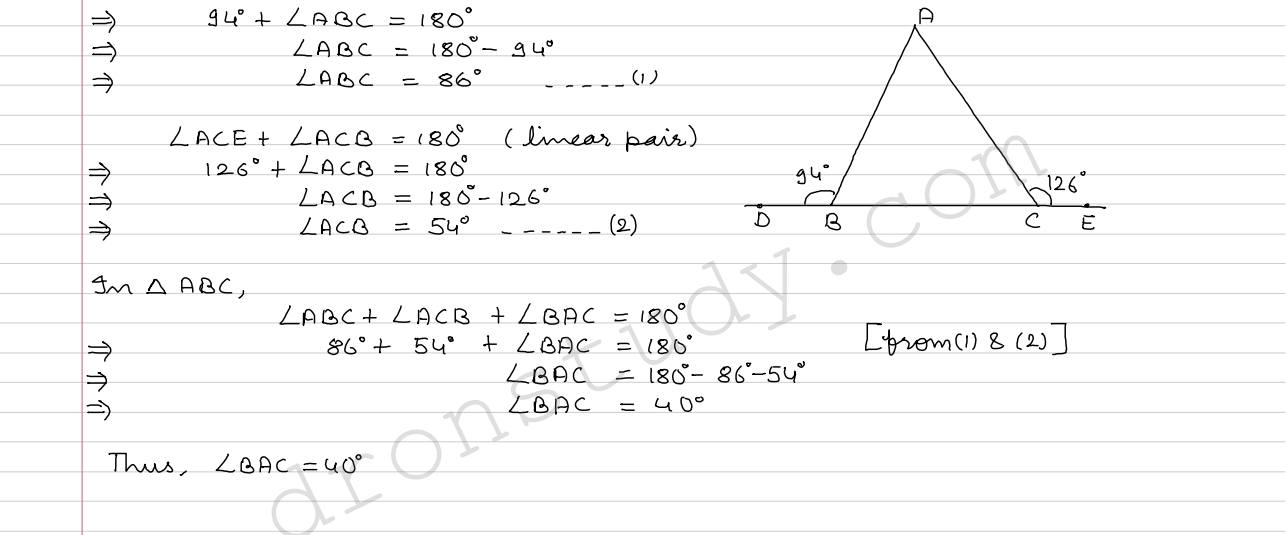 ⇒ 94° + ∠ABC = 180°
⇒ ∠ABC = 180° - 94°
⇒ ∠ABC = 86° -----(1)
∠ACE + ∠ACB = 180° (linear pair)
⇒ 126° + ∠ACB = 180°
⇒ ∠ACB = 180° - 126°
⇒ ∠ACB = 54° ------(2)
In △ ABC,
∠ABC + ∠ACB + ∠BAC = 180°
⇒ 86° + 54° + ∠BAC = 180° [from (1) & (2)]
⇒ ∠BAC = 180° - 86° - 54°
⇒ ∠BAC = 40°
Thus, ∠BAC = 40°
A
94°
126°
D B C E
dronstudy.com